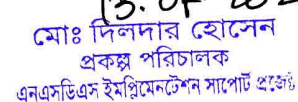 মোঃ দিলদার হোসেন
প্রকল্প পরিচালক
এনএসডিএস ইমপ্লিমেনটেশন সাপোর্ট প্রকল্প